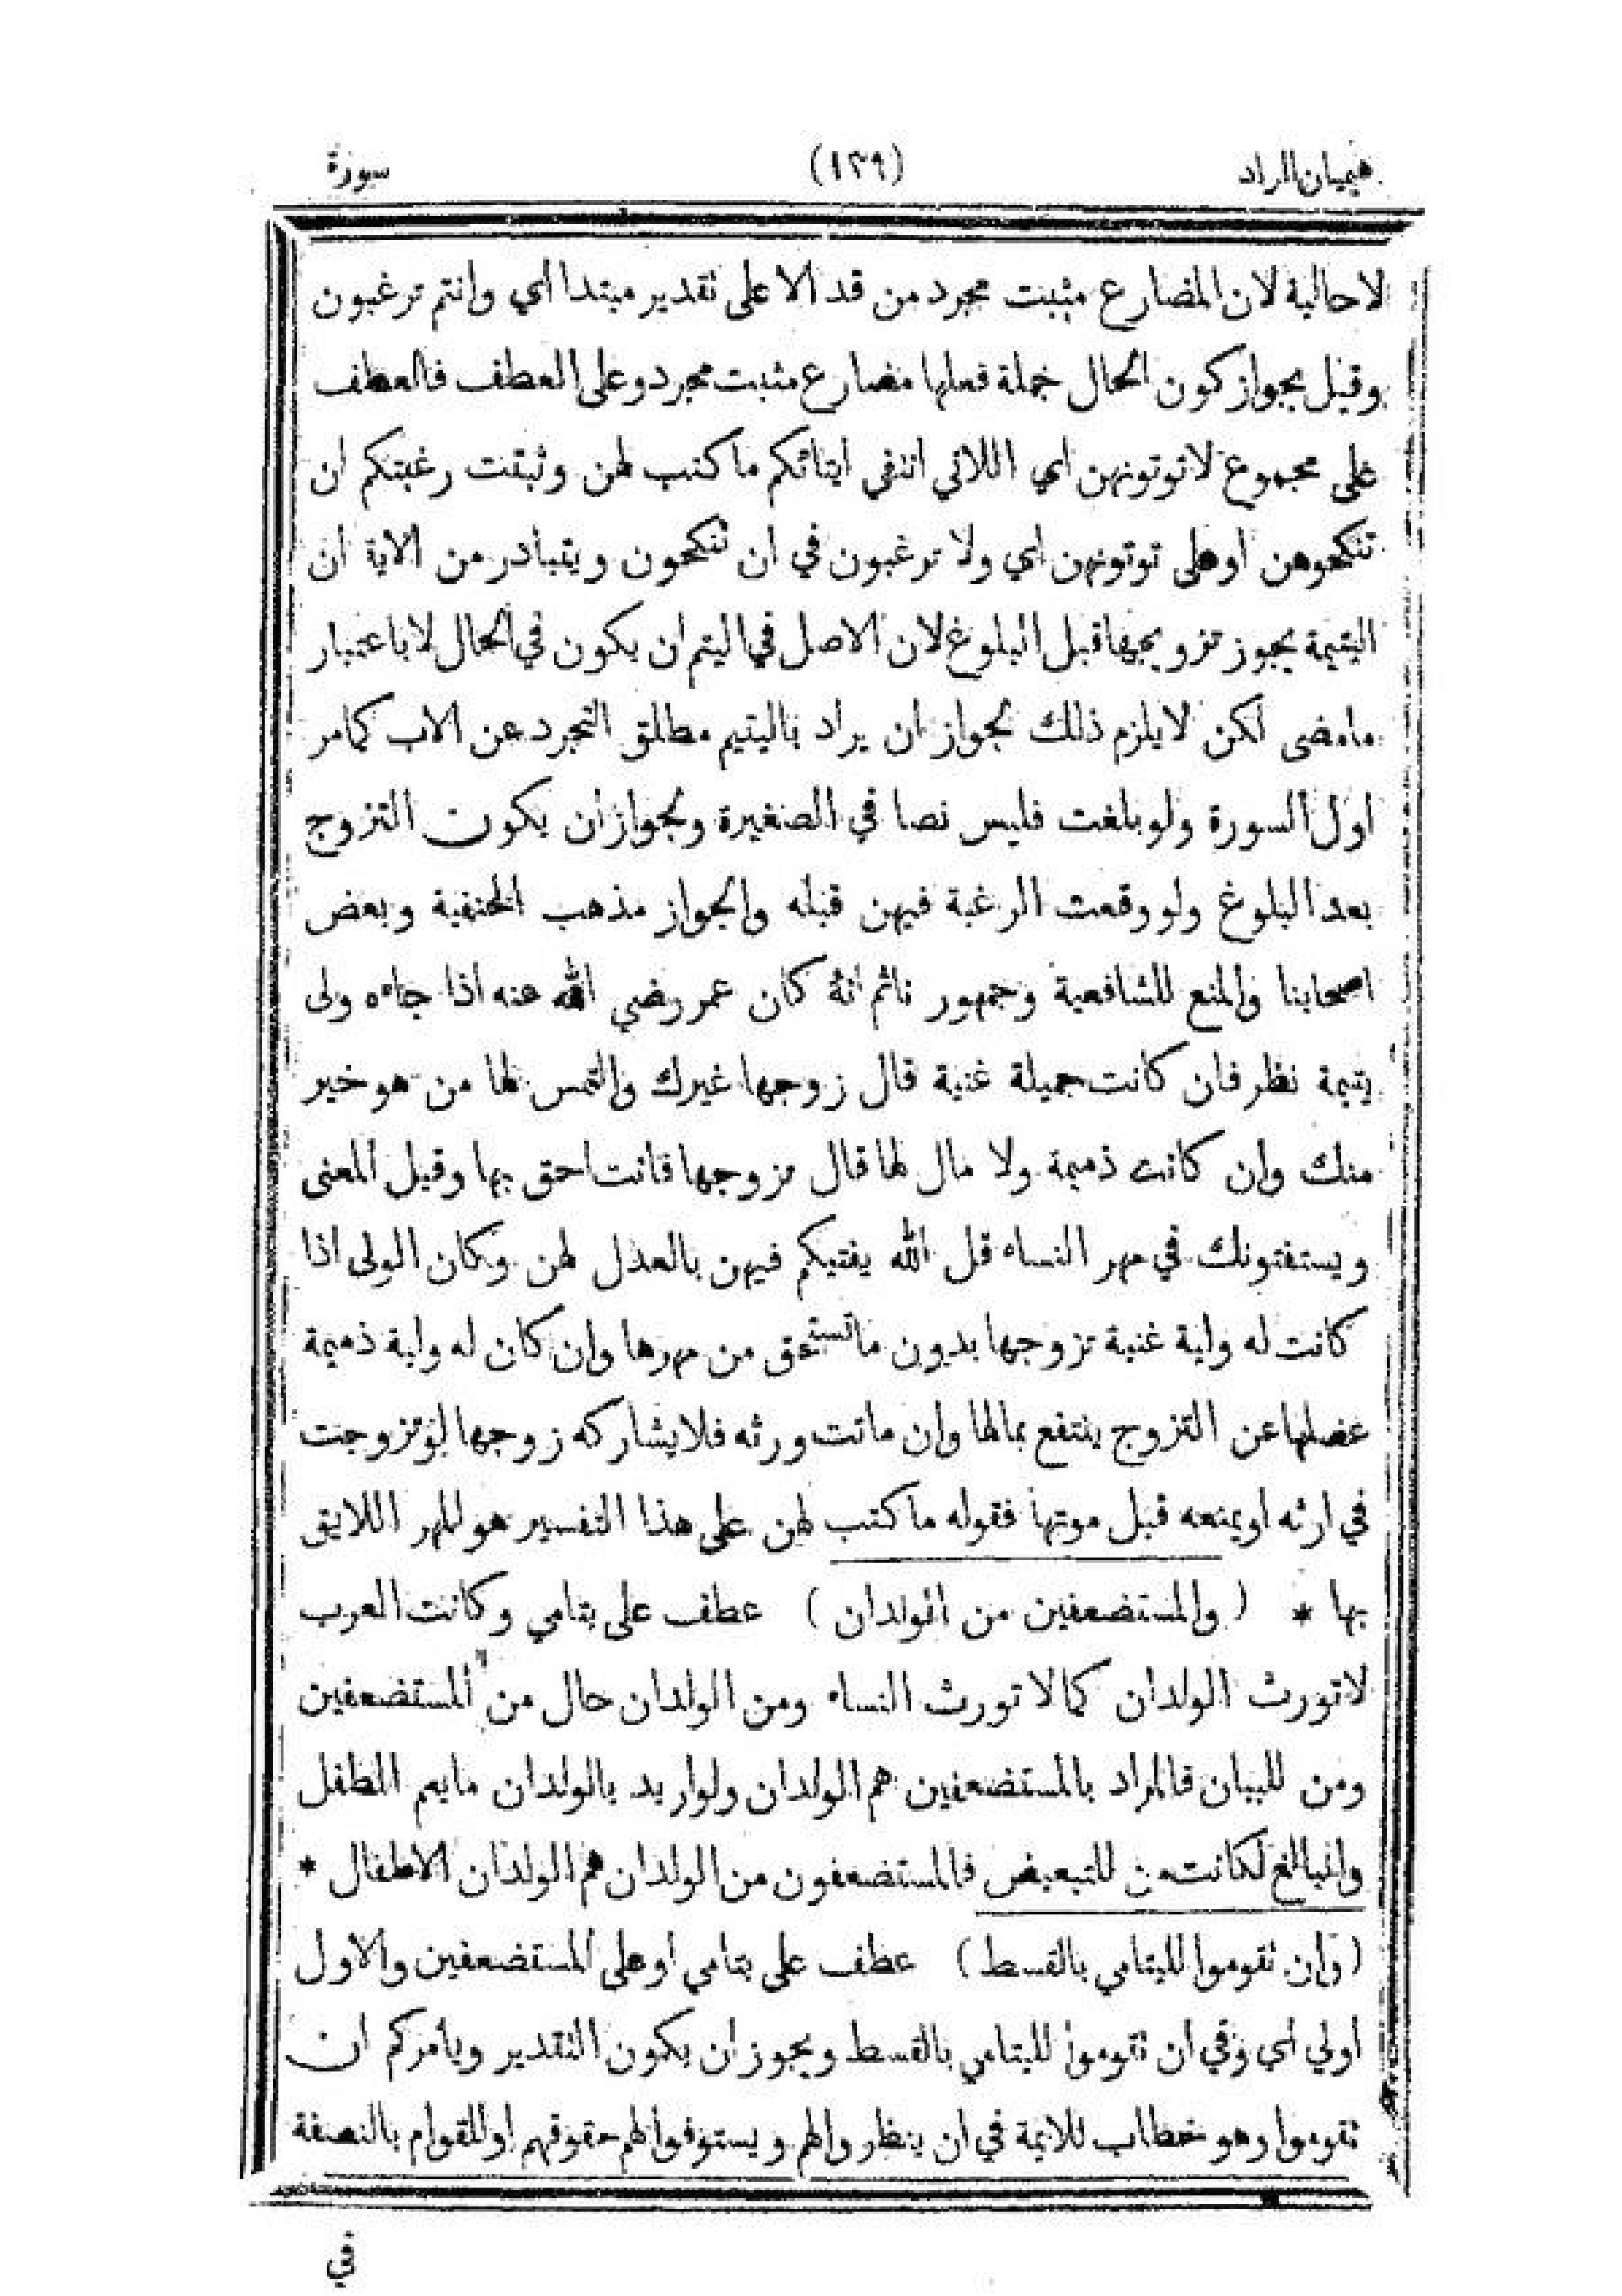 هيميان الزاد (١٣٩) سورة
لا حالية لان المضارع مثبت مجرد من قد الا على تقدير مبتدا اي وانتم ترغبون
وقيل بجواز كون الحال جملة فعلها مضارع مثبت مجرد وعلى العطف فالعطف
على مجموع لا توتونهن اي اللاتي انتفى ايتائكم ما كتب لهن وثبتت رغبتكم ان
تنكحوهن او على توتونهن اي ولا ترغبون في ان تنكحون ويتبادر من الاية ان
اليتيمة يجوز تزويجها قبل البلوغ لان الاصل في اليتم ان يكون في الحال لا باعتبار
ما مضى لكن لا يلزم ذلك لجواز ان يراد باليتيم مطلق التجرد عن الاب كما مر
اول السورة ولو بلغت فليس نصا في الصغيرة ولجواز ان يكون التزوج
بعد البلوغ ولو وقعت الرغبة فيهن قبله والجواز مذهب الحنفية وبعض
اصحابنا والمنع للشافعية وجمهور ناثم انه كان عمر رضي الله عنه اذا جاءه ولى
يتيمة نظر فان كانت جميلة غنية قال زوجها غيرك والتمس لها من هو خير
منك وان كانت ذميمة ولا مال لها قال تزوجها فانت احق بها وقيل المعنى
ويستفتونك في مهر النساء قل الله يفتيكم فيهن بالعدل لهن وكان الولى اذا
كانت له ولية غنية تزوجها بدون ما تستحق من مهرها وان كان له ولية ذميمة
عضلها عن التزوج ينتفع بمالها وان ماتت ورثه فلا يشاركه زوجها لو تزوجت
في ارثه او يمنعه قبل موتها فقوله ما كتب لهن على هذا التفسير هو المهر اللايق
بها * ( والمستضعفين من الولدان ) عطف على يتامي وكانت العرب
لا تورث الولدان كما لا تورث النساء ومن الولدان حال من المستضعفين
ومن للبيان فالمراد بالمستضعفين هم الولدان ولو اريد بالولدان ما يعم الطفل
والبالغ لكانت من للتبعيض فالمستضعفون من الولدان هم الولدان الاطفال *
( وان تقوموا لليتامي بالقسط ) عطف على يتامي او على المستضعفين والاول
اولي اي وفي ان تقوموا لليتامي بالقسط ويجوز ان يكون التقدير ويأمركم ان
تقوموا وهو خطاب للايمة في ان ينظروا لهم ويستوفوا لهم حقوقهم او للقوام بالنصفة
في